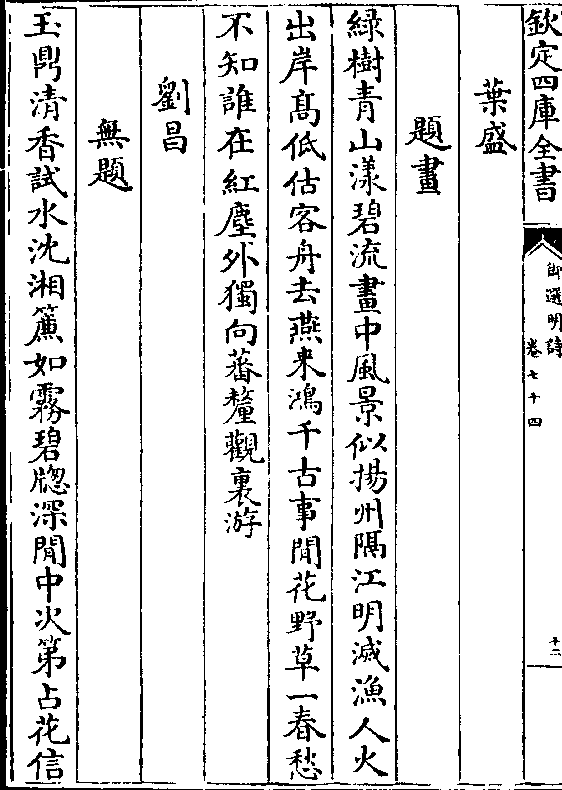 欽定四庫全書
御選明詩
卷七十四
十二
葉盛
題畫
綠樹青山漾碧流畫中風景似揚州隔江明滅漁人火
出岸髙低估客舟去燕來鴻千古事閒花野草一春愁
不知誰在紅塵外獨向蕃釐觀裏游
劉昌
無題
玉鼎清香試水沈湘簾如霧碧牕深閒中次第占花信